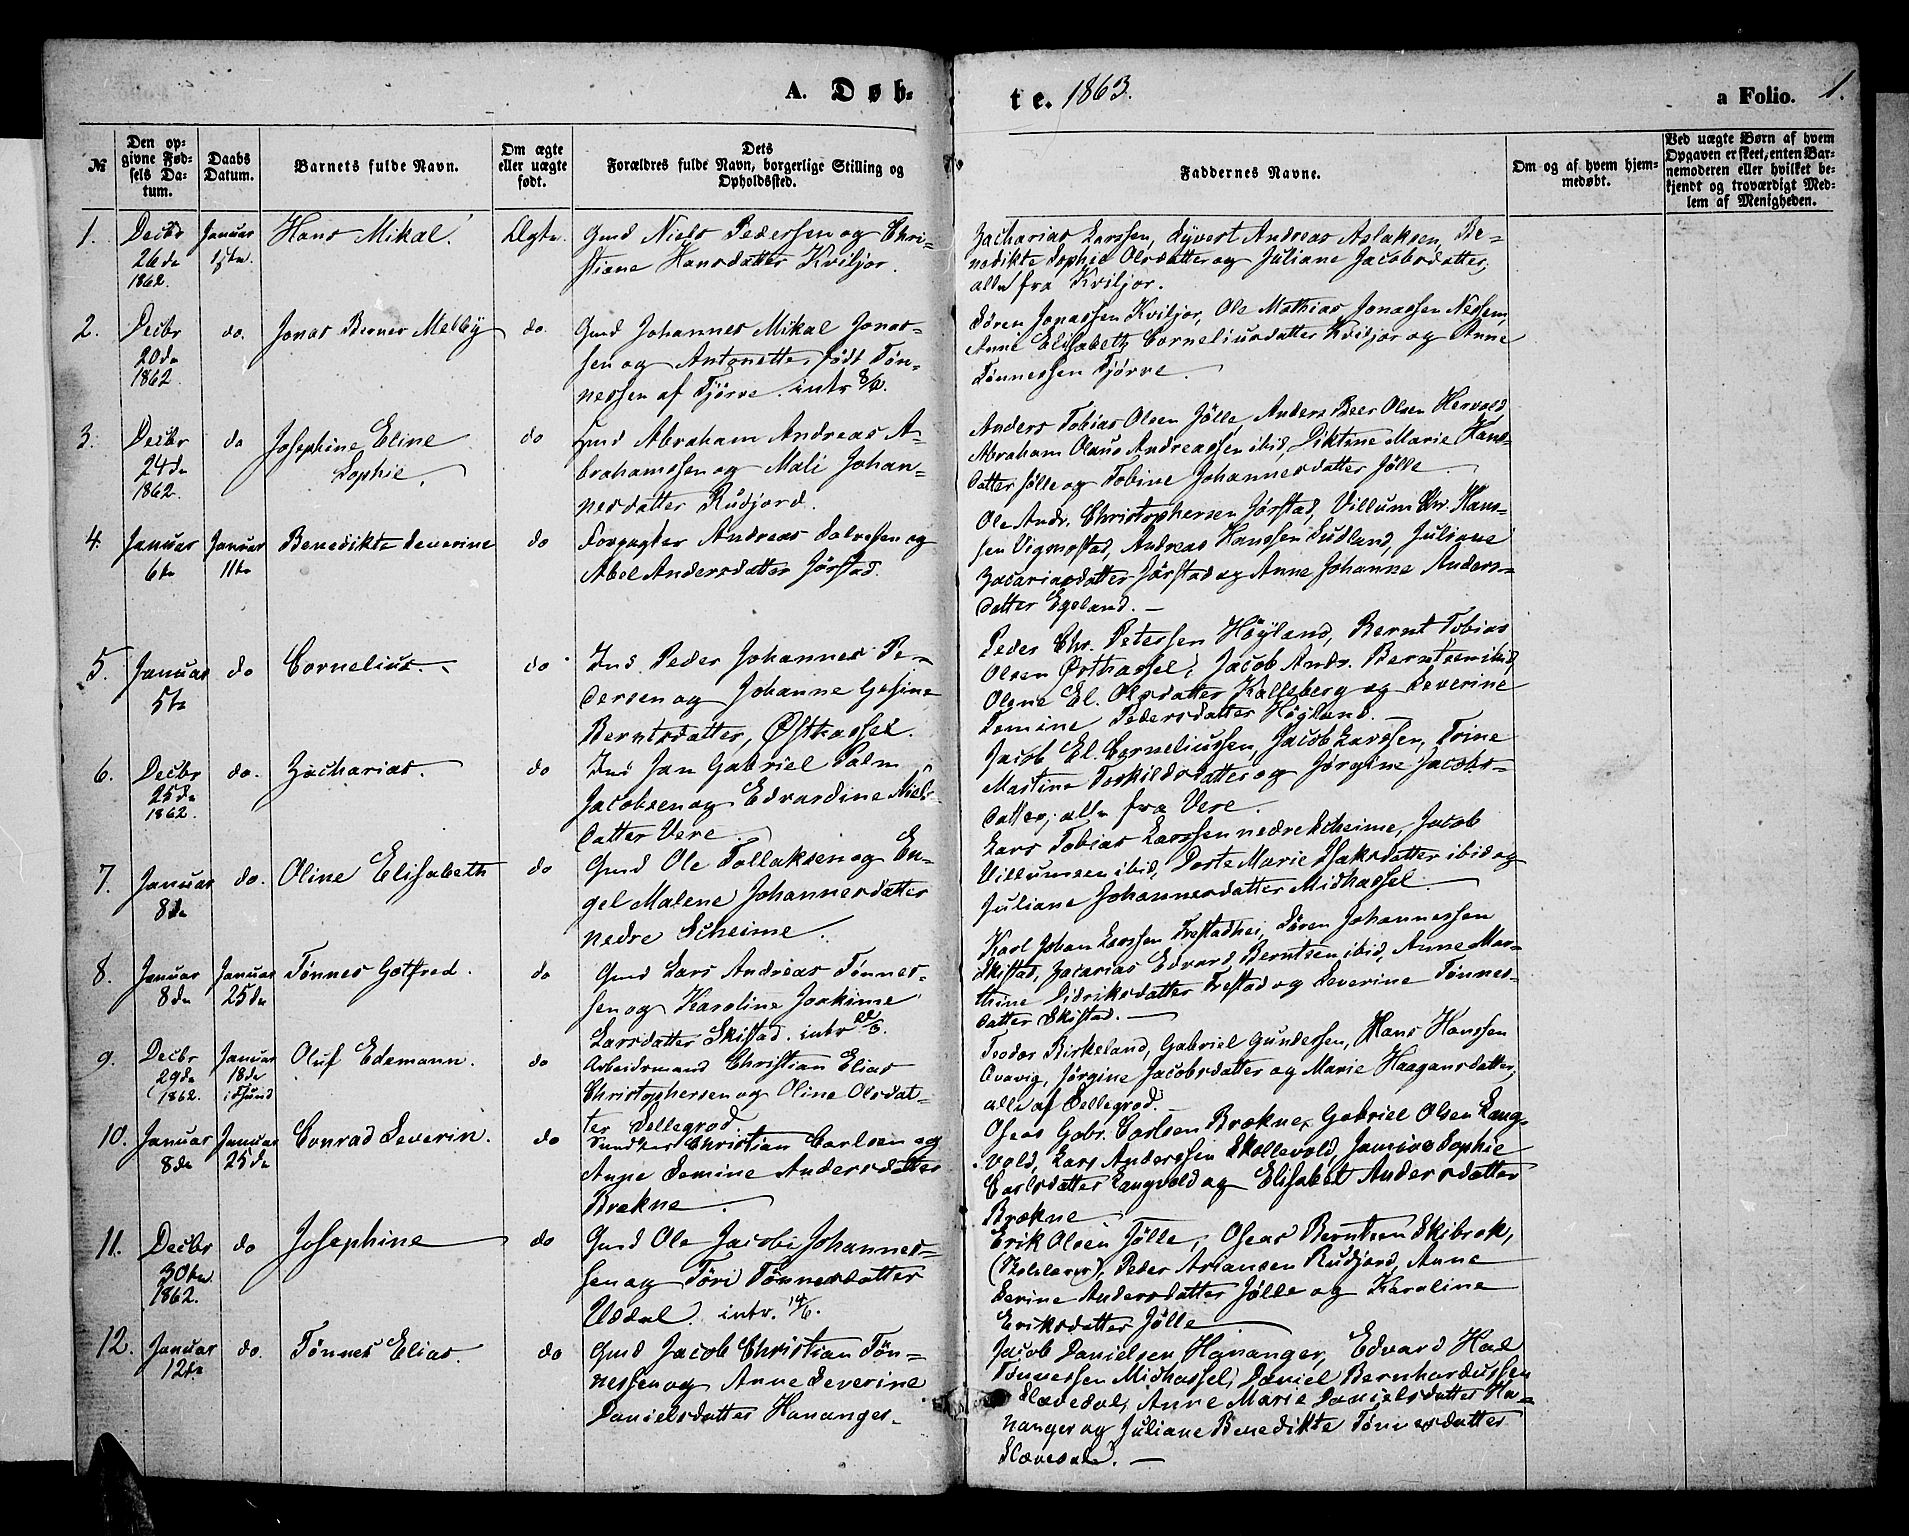 A. Døb-
te. 1863.
a Folio. 1.
№
Den op-
givne Fød-
sels Da-
tum.
Daabs
Datum.
Barnets fulde Navn.
Om ægte
eller uægte
født.
Dets
Forældres fulde Navn, borgerlige Stilling og
Opholdssted.
Faddernes Navne.
Om og af hvem hjem-
medøbt.
Ved uægte Børn af hvem
Opgaven er skeet, enten Bar-
nemoderen eller hvilket be-
kjendt og troværdigt Med-
lem af Menigheden.
1.
Decbr
26de
1862.
Januar
1ste.
Hans Mikal.
Ægte.
Gmd Niels Pedersen og Chri-
stiane Hansdatter Kviljor.
Zacharias Larssen, Syvert Andreas Aslaksen, Be-
nedikte Sophie Olsdatter og Juliane Jacobsdatter,
alle fra Kviljor.
2.
Decbr
20de
1862.
do.
Jonas Berner Melby
do.
Gmd Johannes Mikal Jonas-
sen og Antonette, født Tøn-
nessen af Tjørve. intr 8/6.
Søren Jonassen Kviljor, Ole Mathias Jonassen Nesheim,
Anne Elisabeth Corneliusdatter Kviljor og Anne
Tønnessen Tjørve.
3.
Decbr
24de
1862.
do
Josephine Eline
Sophie.
do
Gmd Abraham Andreas A-
brahamssen og Mali Johan-
nesdatter Rudjord.
Anders Tobias Olsen Jølle, Anders Beer Olsen Hervold,
Abraham Olaus Andreassen ibid, Diktine Marie Hans-
datter Jølle og Tobine Johannesdatter Jølle.
4.
Januar
6te
Januar
11te
Benedikte Severine
do
Forpagter Andreas Salvesen og
Abel Andersdatter Jørstad.
Ole Andr. Christophersen Jørstad, Villum Chr. Hans-
sen Vigmostad, Andreas Hanssen Sudland, Juliane
Zacariasdatter Jørstad og Anne Johanne Anders-
datter Egeland.
5.
Januar
5te
do
Cornelius
do
Ind Peder Johannes Pe-
dersen og Johanne Gesine
Berntsdatter, Østhassel.
Peder Chr. Petersen Høyland, Bernt Tobias
Olsen Østhassel, Jacob Andr. Berntsen ibid,
Olene El. Olsdatter Kalleberg og Severine
Tomine Pedersdatter Høyland.
6.
Decbr
25de
1862.
do.
Zacharias.
do
Ind Jan Gabriel Palm
Jacobsen og Edvardine Niels-
datter Vere.
Jacob El. Corneliussen, Jacob Larssen, Trine
Martine Torkildsdatter og Jørgine Jacobs-
datter, alle fra Vere.
7.
Januar
8de
do.
Oline Elisabeth
do
Gmd Ole Tollaksen og En-
gel Malene Johannesdatter
nedre Skeime.
Lars Tobias Larssen nedre Skeime, Jacob
Villumsen ibid, Dorte Marie Isaksdatter ibid og
Juliane Johannesdatter Midhassel.
8.
Januar
8de
Januar
25de
Tønnes Gotfred.
do
Gmd Lars Andreas Tønnes-
sen og Karoline Joakime
Larsdatter Skistad. intr 22/3.
Karl Johan Larssen Frestadhei, Søren Johannessen
Skistad, Zacarias Edvard Berntsen ibid, Anne Mar-
thine Didriksdatter Frestad og Severine Tønnes-
datter Skistad.
9.
Decbr
29de
1862.
Januar
18de
i Hjund
Oluf Edemann.
do
Arbeidsmand Christian Elias
Christophersen og Oline Olsdat-
ter Sellegrod
Teodor Birkeland, Gabriel Gundersen, Hans Hanssen
Qvavig, Jørgine Jacobsdatter og Marie Haagansdatter,
alle af Sellegrod.
10.
Januar
8de
Januar
25de
Conrad Severin.
do
Christian Carlsen og
Anne Semine Andersdatter
Brækne.
Oseas Gabr. Carlsen Brækne, Gabriel Olsen Lang-
vold, Lars Anderssen Skollevold, Janine Sophie
Carlsdatter Langvold og Elisabet Andersdatter
Brækne
11.
Decbr
30te
1862.
do
Josephine
do
Gmd Ole Jacobi Johannes-
sen og Tøri Tønnesdatter
Ueddal. intr. 14/6.
Erik Olsen Jølle, Oseas Berntsen Skibrok,
Peder Ariansen Rudjord, Anne
Serine Andersdatter Jølle og Karoline
Eriksdatter Jølle
12.
Januar
12te
do.
Tønnes Elias.
do
Gmd Jacob Christian Tøn-
nessen og Anne Severine
Danielsdatter Hananger.
Jacob Danielsen Hananger, Edvard Kal
Tønnessen Midhassel, Daniel Bernhardussen
Slævedal, Anne Marie Danielsdatter Ha-
nanger og Juliane Benedikte Tønnesdatter
Slævedal.